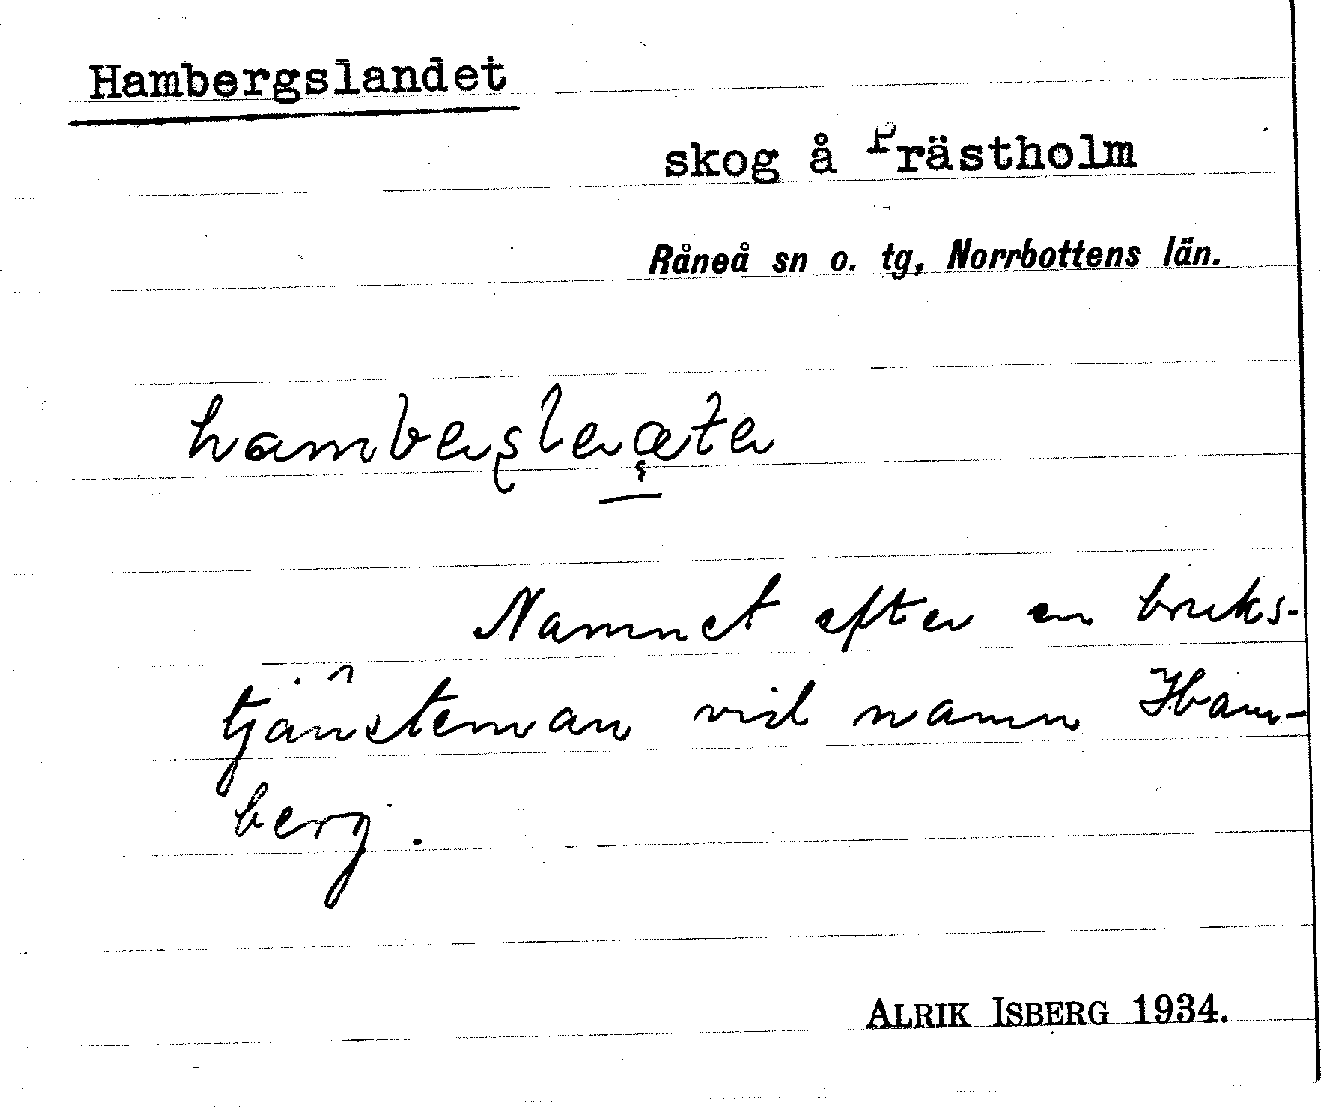 Hambergslandet
skog å Prästholm
Råneå sn o. tg, Norrbottens län.
Namnet efter en bruks-
tjänsteman vid namn Ham-
berg.
ALRIK ISBERG 1934.